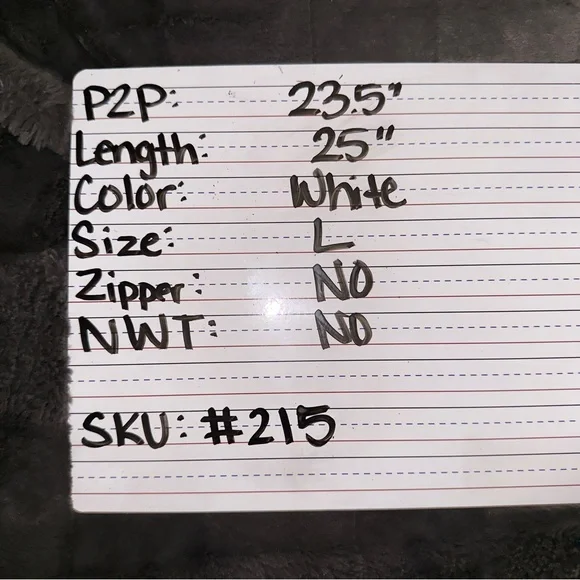 P2P: 23.5"
Length: 25"
Color: White
Size: L
Zipper: NO
NWT: NO
SKU: #215